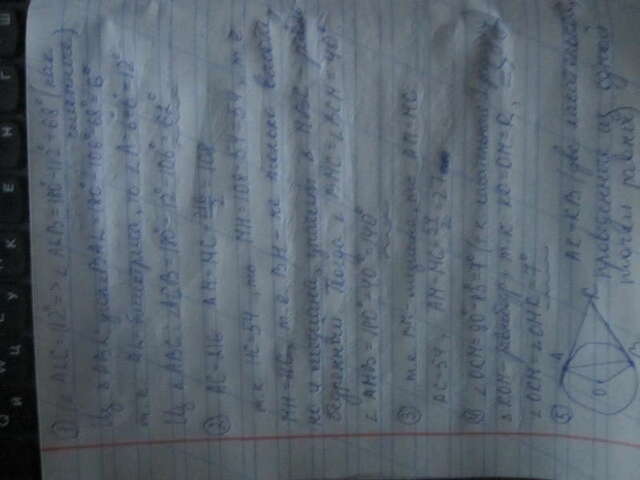 ① ∠ALC=112° => ∠ALB=180°-112°=68° (как
смежные)
Из ∆ABL: ∠BAL=180°-106°-68°=6°
т.к. AL-биссектриса, то ∠A=6°+6°=12°
Из ∆ABC: ∠ACB=180°-12°-106°=62°
② AC=216 AM=MC=216/2=108
т.к. HC=54, то MH=108-54=54, т.е.
MH=HC, т.е. BH-не только высота,
но и медиана, значит ∆ MBC-равно
бедренный. Тогда ∠BMC=∠BCM=40°
∠AMB=180°-40°=140°
③ т.к. BM-медиана, то AM=MC
AC=54, AM=MC=54/2=27
④ ∠OKM=90°-83°=7° (т.к. касательная ⊥
∆KOM-равнобедр, т.к. KO=OM=R,
∠OKM=∠OMK=7°
⑤ A
O K
B
AK=KB (две касательные,
проведенные из одной
точки равны)